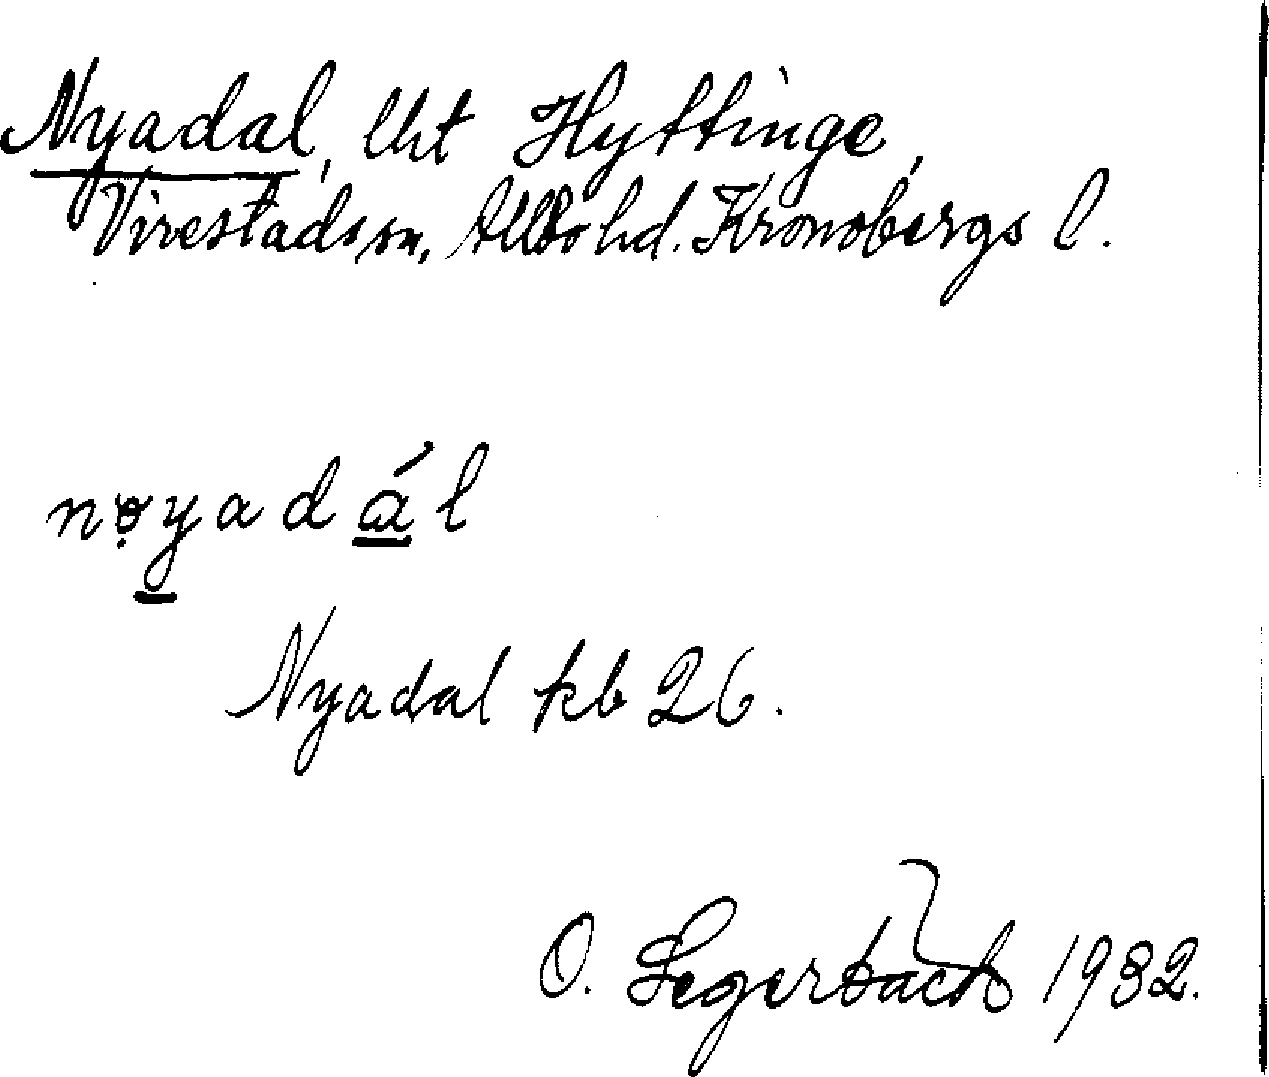 Nyadal, lht Hyttinge,
Virestads sn, Allbo hd. Kronobergs l.
nøyadál
Nyadal kb 26.
O. Segerbäck 1932.